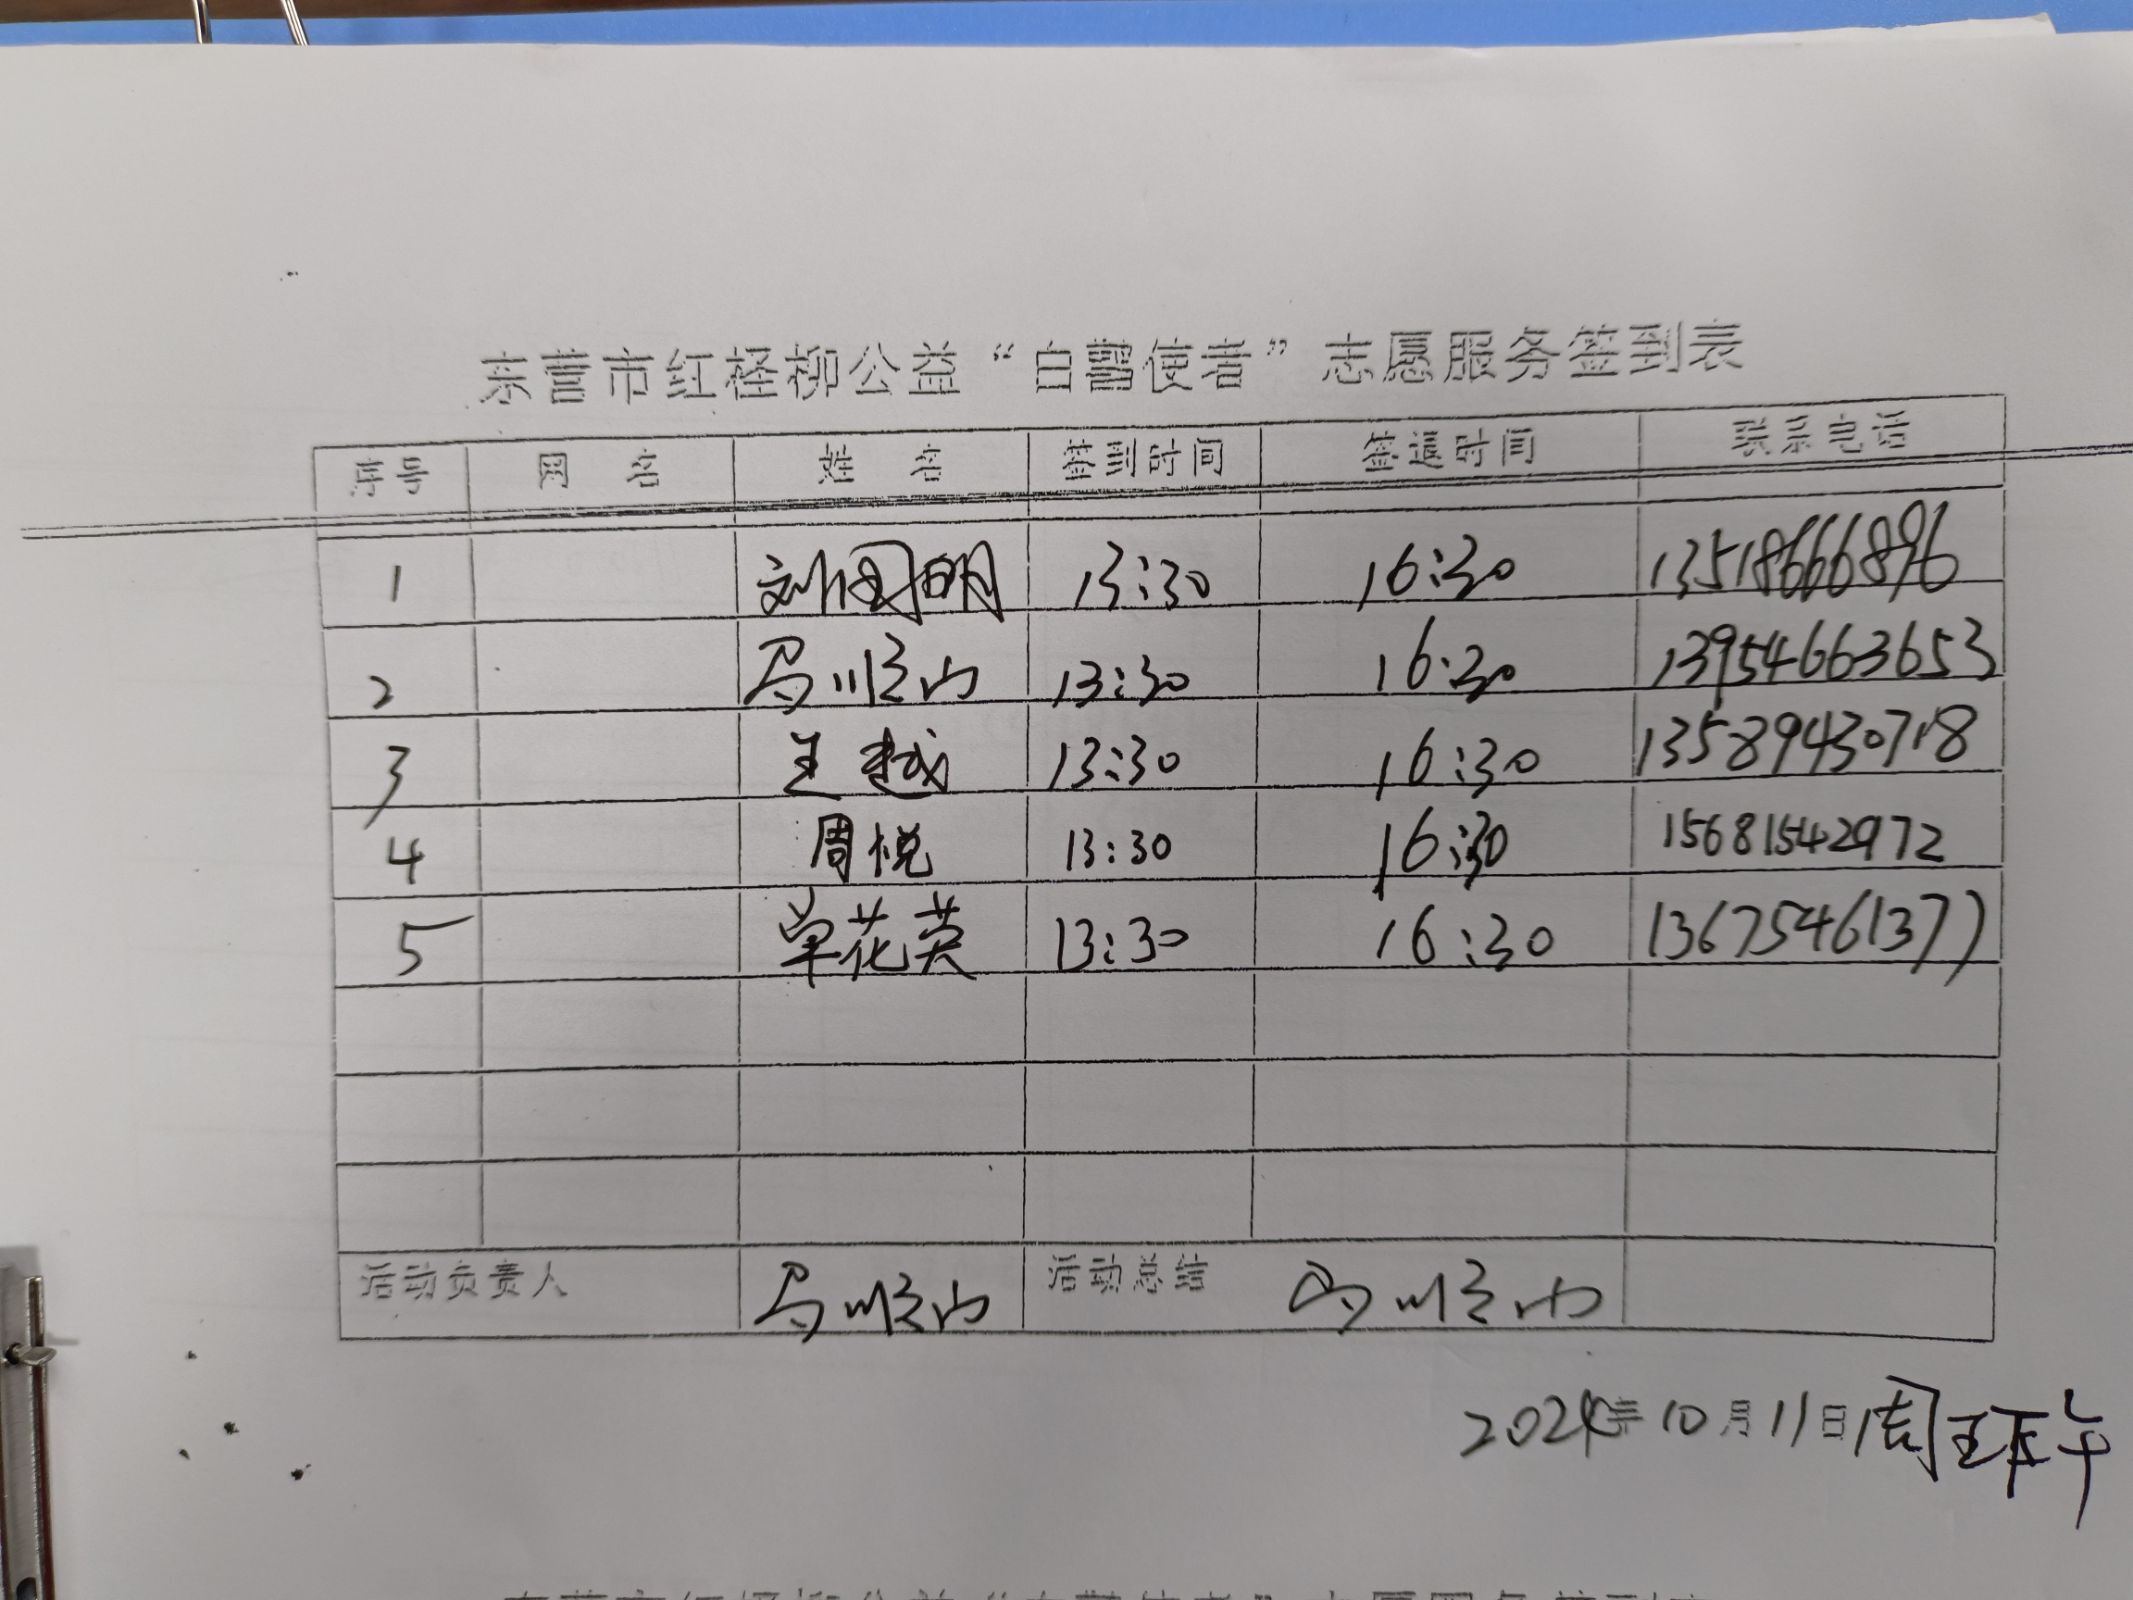 东营市红柽柳公益“白鹭使者”志愿服务签到表
序号 网 名 姓 名 签到时间 签退时间 联系电话
1 刘国明 13:30 16:30 13518666896
2 马顺山 13:30 16:30 13954663653
3 王越 13:30 16:30 13589430718
4 周悦 13:30 16:30 15681542972
5 单花英 13:30 16:30 13675461377
活动负责人 马顺山 活动总结 马顺山
2024年10月11日周五下午